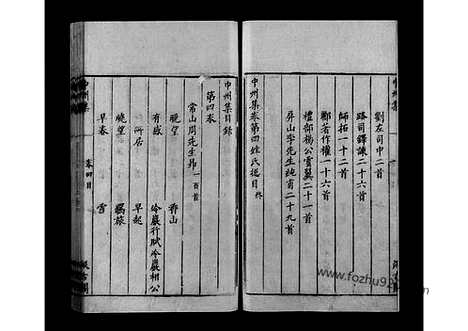 劉左司中二首
路司鐸謙二十六首
師拓二十二首
酈著作權一十六首
禮部楊公雲翼二十一首
屏山李先生純甫二十九首
中州集卷第四姓氏總目終
中州集目録
第四卷
常山周先生昂一百首
晩望
春山
有感
冷巖行賦冷巖相公
所居
早起
曉望
羈旅
早春
雪
中州集
卷四目
www.fozhu92